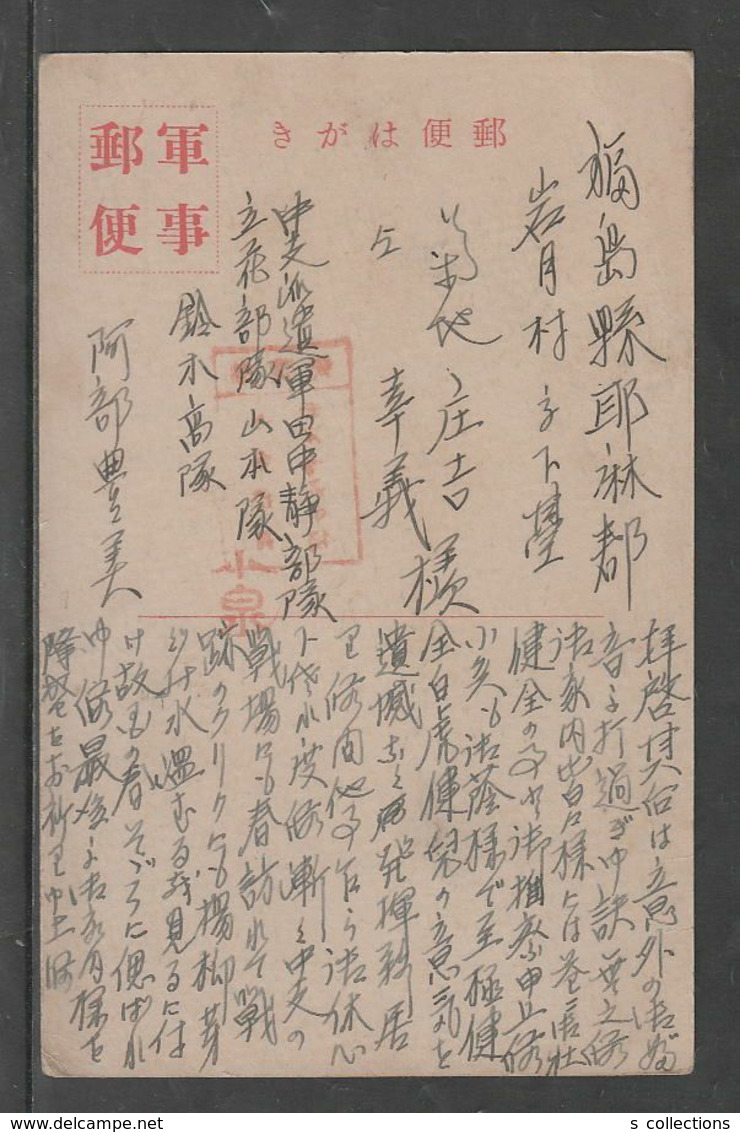 郵便はがき
軍事
郵便
福島縣耶麻郡
岩月村字下
菊地庄吉様
仝 幸義
中支派遣軍田中静部隊
立花部隊山本隊
鈴木高隊
阿部豊美
小泉
拝啓其后は意外の御無
音に打過ぎ申訳無之候
御家内皆々様には益々
健全の事と御推察申上候
小兵も御蔭様で至極健
全白虎健児の意気を
遺憾なく発揮致居
り候間他事乍ら御休心
下され度候漸く中支の
戦場にも春訪れて戦
跡のクリークにも楊柳芽
水温むる
け故国の春そゞろに偲ばれ
申候最後に御家内様を
お祈り申上候
s collections